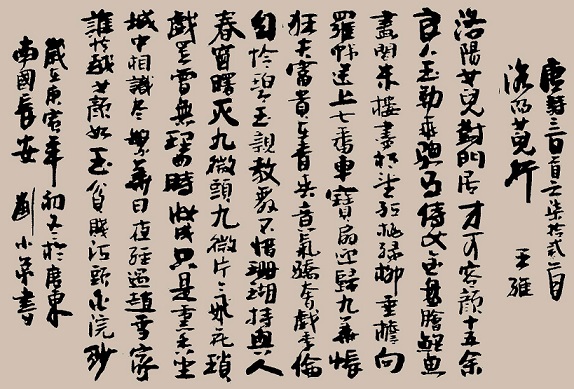 唐詩三百首之柒拾貳首
洛阳女兒行 王維
洛陽女兒對門居才可容顏十五余
良人玉勒乘驄馬侍女金盤膾鯉魚
畫閣朱樓盡相望红桃绿柳垂檐向
羅帷送上七香車寶扇迎歸九華帳
狂夫富貴在青春意氣驕奢劇季倫
自怜碧玉親教舞不惜珊瑚持與人
春窗曙灭九微九微片片飛花瑣
戲罢曾無理曲時妝成只是熏香坐
城中相識尽繁華日夜經過趙李家
誰怜越女顏如玉貧賤江頭自浣纱
歲在庚寅年初五於廣東
南國長安 劉小書